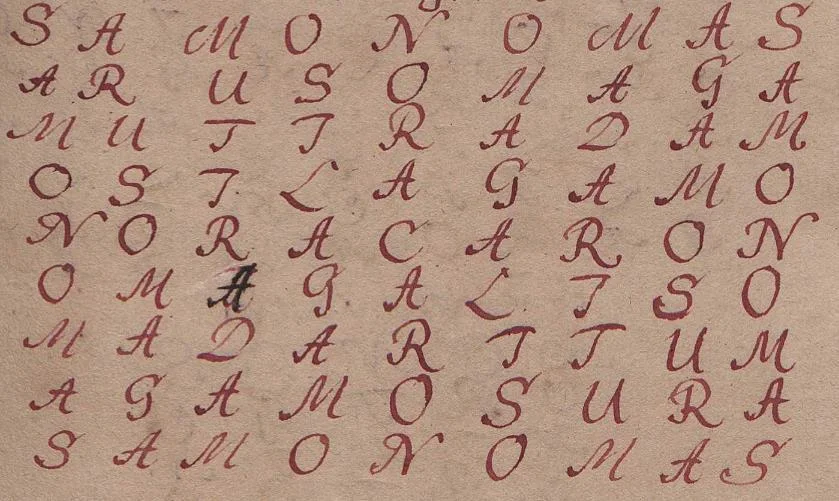 S A M O N O M A S
A R U S O M A G A
M U T T R A D A M
O S T L A G A M O
N O R A C A R O N
O M A G A L T S O
M A D A R T T U M
A G A M O S U R A
S A M O N O M A S